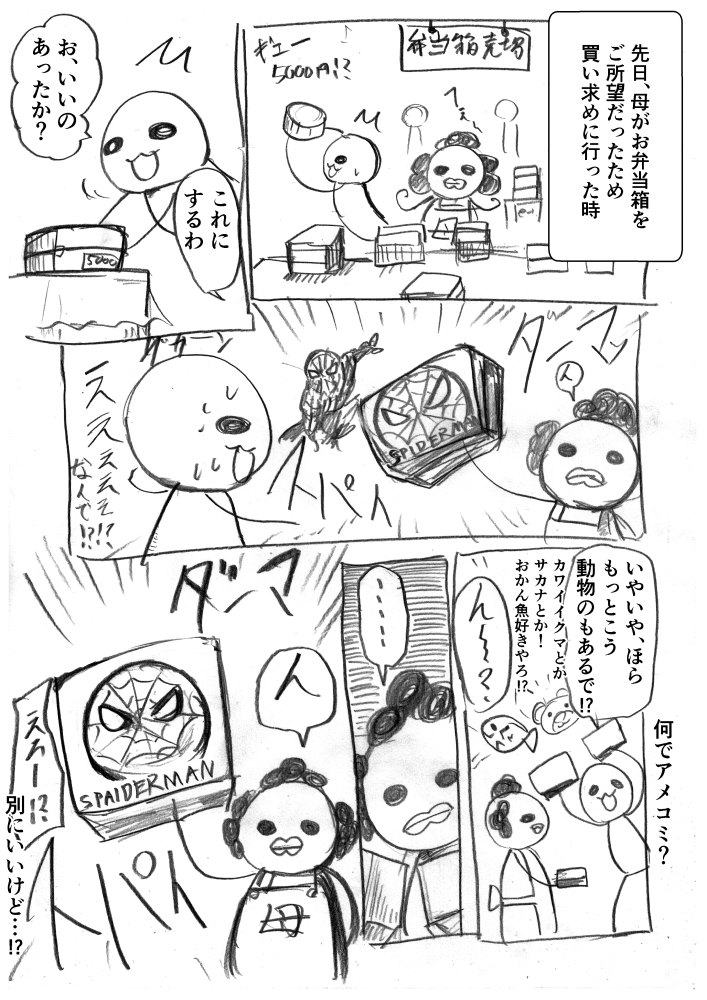 先日、母がお弁当箱を
ご所望だったため
買い求めに行った時
弁当箱売場
ギェー
5000円!?
へぇ〜
お、いいの
あったか?
これに
するわ
5000
ダンマッ
ん
SPIDERMAN
スパイ
グガーン
えええええ!?
なんで!?!
いやいや、ほら
もっとこう
動物のもあるで!?
カワイイクマとか
サカナとか!
おかん魚好きやろ!?
ん〜?
何でアメコミ?
……
ダンマ
ん
SPAIDERMAN
母
スパイ
えろー!?
別にいいけど…!?